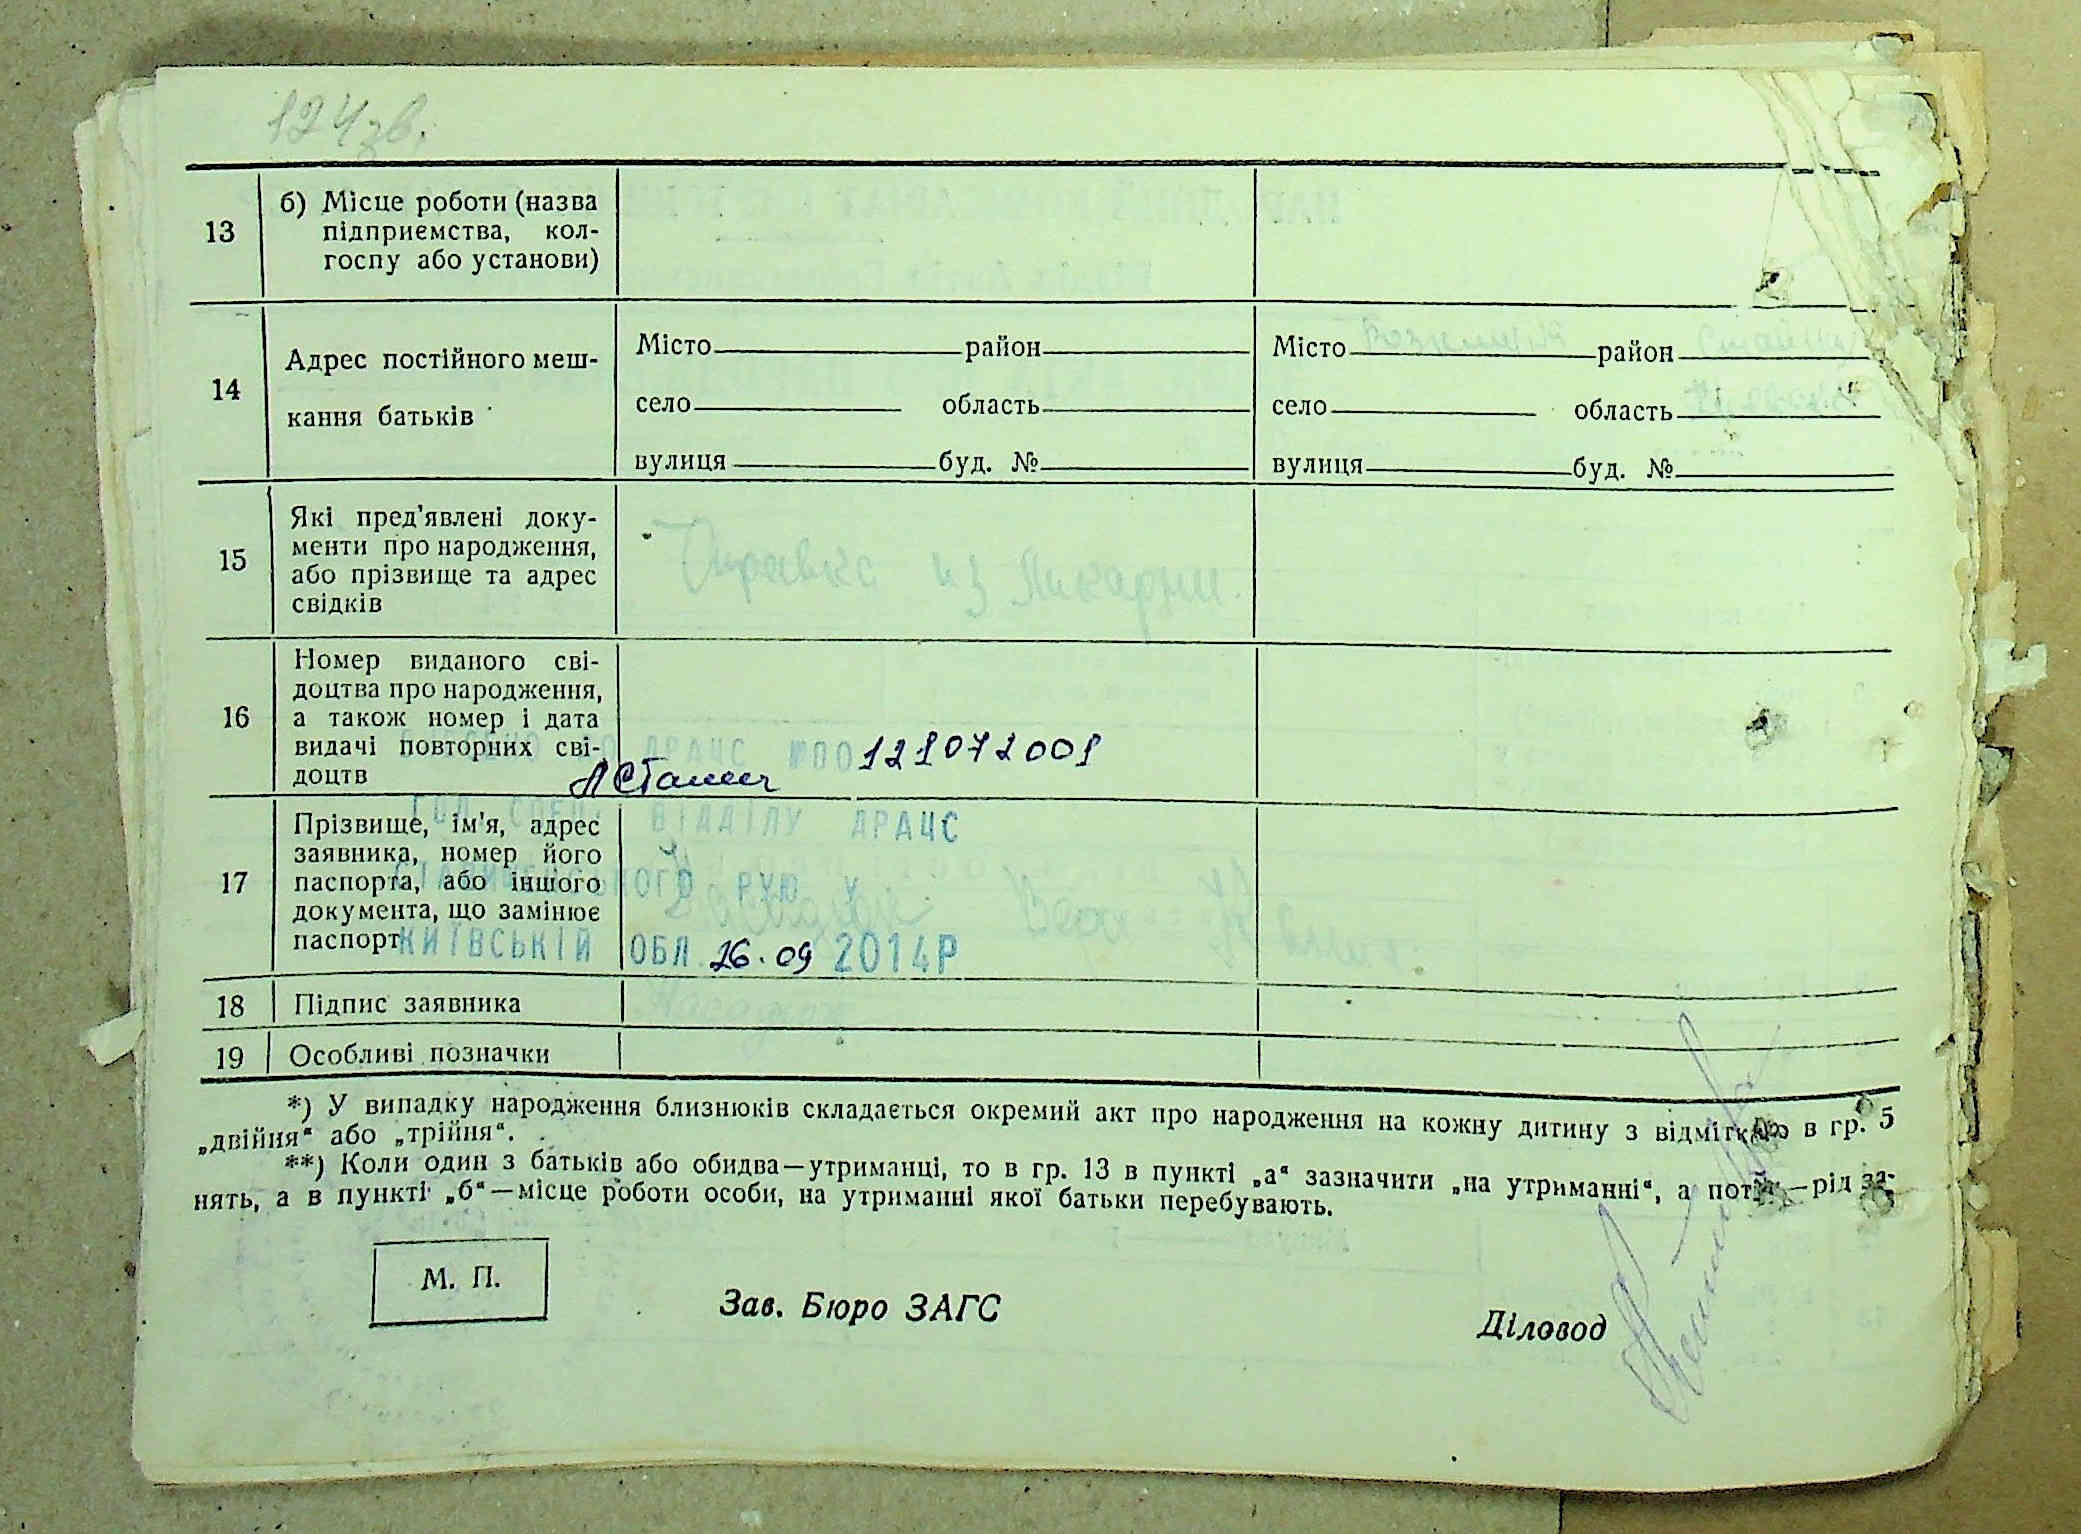 124зв.
13
б) Місце роботи (назва
підприємства, кол-
госпу або установи)
14
Адрес постійного меш-
кання батьків
Місто район
село область
вулиця буд. №
Місто район
село область
вулиця буд. №
15
Які пред'явлені доку-
менти про народження,
або прізвище та адрес
свідків
Справка из Ликарни.
16
Номер виданого сві-
доцтва про народження,
а також номер і дата
видачі повторних сві-
доцтв
ДО ДРАЦС №00121072001
ГОЛ. СПЕЦ. ВІДДІЛУ ДРАЦС
17
Прізвище, ім'я, адрес
заявника, номер його
паспорта, або іншого
документа, що замінює
паспорт
РУЮ У
КИЇВСЬКІЙ ОБЛ. 26.09 2014Р
18
Підпис заявника
19
Особливі позначки
*) У випадку народження близнюків складається окремий акт про народження на кожну дитину з відміткою в гр. 5
„двійня“ або „трійня“.
**) Коли один з батьків або обидва—утриманці, то в гр. 13 в пункті „а“ зазначити „на утриманні“, а потім—рід за-
нять, а в пункті „б“—місце роботи особи, на утриманні якої батьки перебувають.
М. П.
Зав. Бюро ЗАГС
Діловод